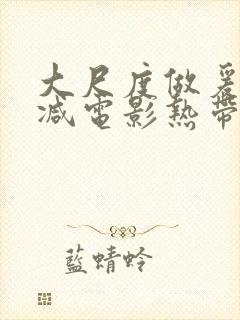 大尺度做爰
减電影熱帶
藍蜻蛉